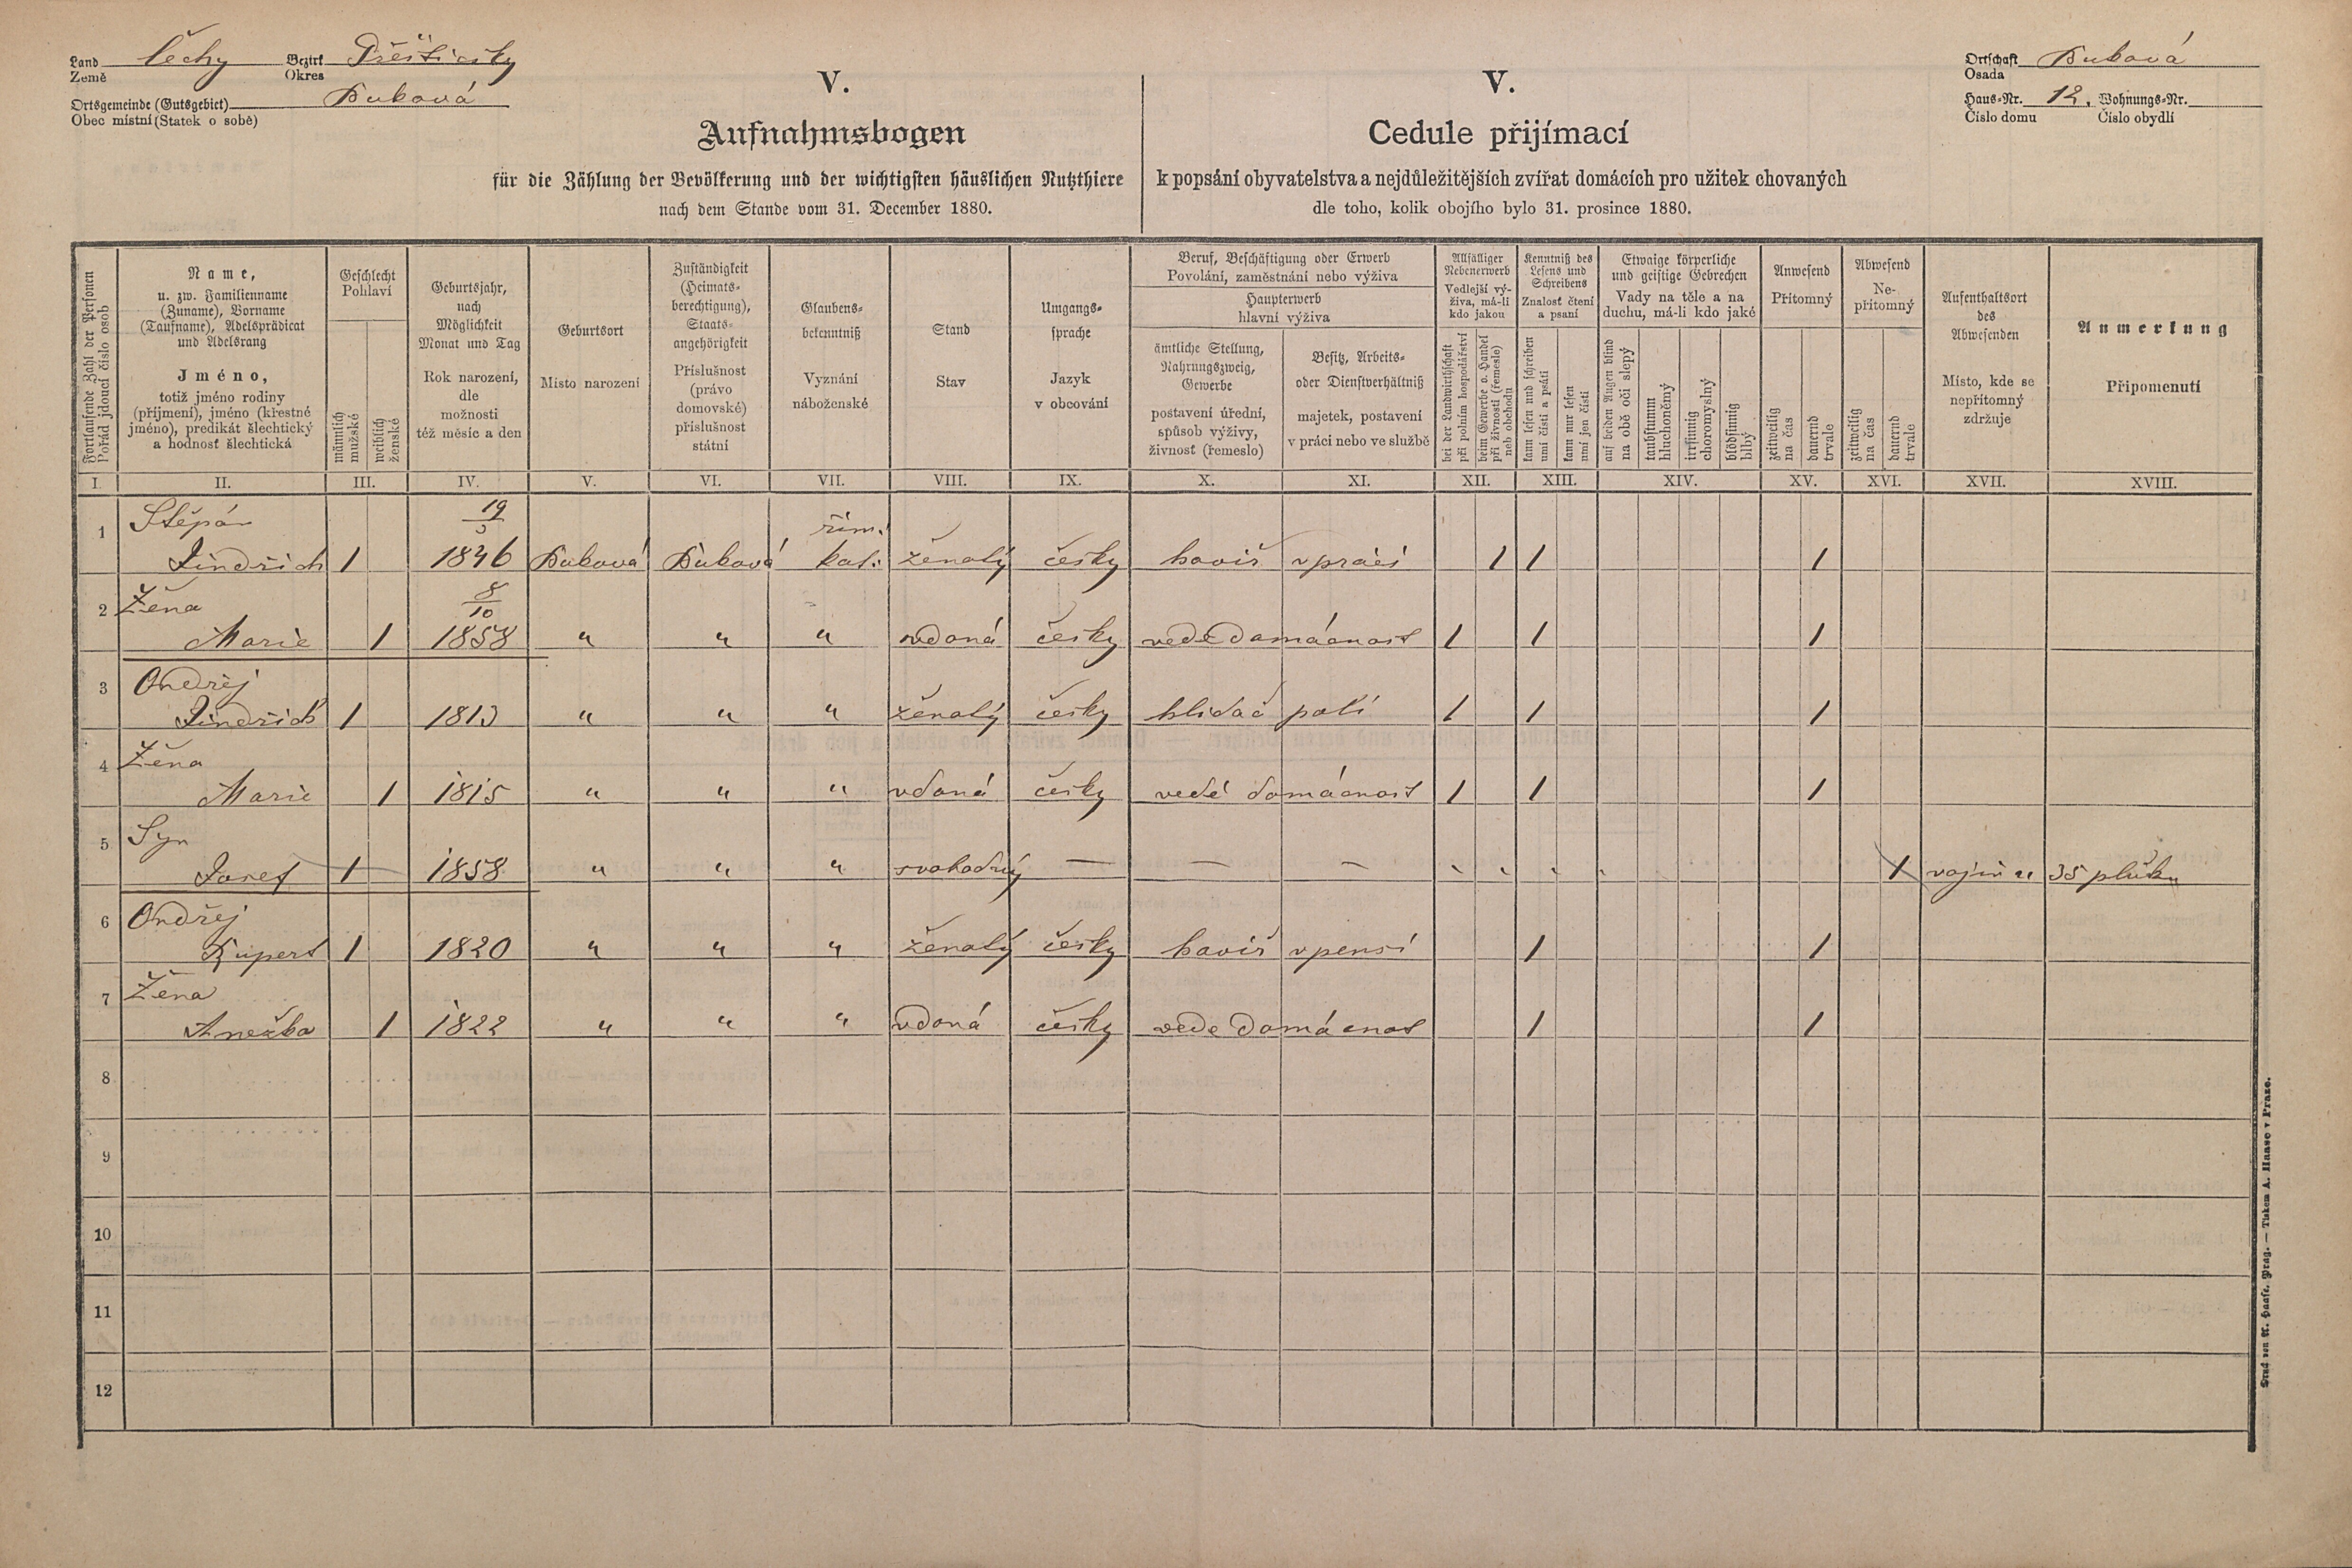 Land Země Čechy Bezirk Okres Přeštický
Ortsgemeinde (Gutsgebiet) Obec místní (Statek o sobě) Buková
V.
Aufnahmsbogen
für die Zählung der Bevölkerung und der wichtigsten häuslichen Nutzthiere
nach dem Stande vom 31. December 1880.
V.
Cedule přijímací
k popsání obyvatelstva a nejdůležitějších zvířat domácích pro užitek chovaných
dle toho, kolik obojího bylo 31. prosince 1880.
Ortschaft Osada Buková
Haus-Nr. Číslo domu 12. Wohnungs-Nr. Číslo obydlí
Fortlaufende Zahl der Personen
Pořád jdoucí číslo osob
Name,
u. zw. Familienname
(Zuname), Vorname
(Taufname), Adelsprädicat
und Adelsrang
Jméno,
totiž jméno rodiny
(příjmení), jméno (křestné
jméno), predikát šlechtický
a hodnosť šlechtická
Geschlecht
Pohlaví
männlich
mužské
weiblich
ženské
Geburtsjahr,
nach
Möglichkeit
Monat und Tag
Rok narození,
dle
možnosti
též měsíc a den
Geburtsort
Místo narození
Zuständigkeit
(Heimats-
berechtigung),
Staats-
angehörigkeit
Příslušnost
(právo
domovské)
příslušnost
státní
Glaubens-
bekenntniß
Vyznání
náboženské
Stand
Stav
Umgangs-
sprache
Jazyk
v obcování
Beruf, Beschäftigung oder Erwerb
Povolání, zaměstnání nebo výživa
Haupterwerb
hlavní výživa
ämtliche Stellung,
Nahrungszweig,
Gewerbe
postavení úřední,
spůsob výživy,
živnost (řemeslo)
Besitz, Arbeits-
oder Dienstverhältniß
majetek, postavení
v práci nebo ve službě
Allfälliger
Nebenerwerb
Vedlejší vý-
živa, má-li
kdo jakou
bei der Landwirthschaft
při polním hospodářství
beim Gewerbe o. Handel
při živnosti (řemesle)
neb obchodu
Kenntniß des
Lesens und
Schreibens
Znalosť čtení
a psaní
kann lesen und schreiben
umí čísti a psáti
kann nur lesen
umí jen čísti
Etwaige körperliche
und geistige Gebrechen
Vady na těle a na
duchu, má-li kdo jaké
auf beiden Augen blind
na obě oči slepý
taubstumm
hluchoněmý
irrsinnig
choromyslný
blödsinnig
blbý
Anwesend
Přítomný
zeitweilig
na čas
dauernd
trvale
Abwesend
Ne-
přítomný
zeitweilig
na čas
dauernd
trvale
Aufenthaltsort
des
Abwesenden
Místo, kde se
nepřítomný
zdržuje
Anmerkung
Připomenutí
I. II. III. IV. V. VI. VII. VIII. IX. X. XI. XII. XIII. XIV. XV. XVI. XVII. XVIII.
1 Štěpán 19/3 řím.
Jindřich 1 1846 Buková Buková kat. ženatý česky havíř v práci 1 1 1
2 Žena 8/10
Marie 1 1858 " " " vdaná česky vede domácnost 1 1 1
3 Ondřej
Jindřich 1 1813 " " " ženatý česky hlídač polí 1 1 1
4 Žena
Marie 1 1815 " " " vdaná česky vede domácnost 1 1 1
5 Syn
Josef 1 1858 " " " svobodný — — — 1 vojín u 35 pluku
6 Ondřej
Rupert 1 1820 " " " ženatý česky havíř v pensi 1 1
7 Žena
Anežka 1 1822 " " " vdaná česky vede domácnost 1 1
8
9
10
11
12
Druck von A. Haase, Prag. — Tiskem A. Haase v Praze.